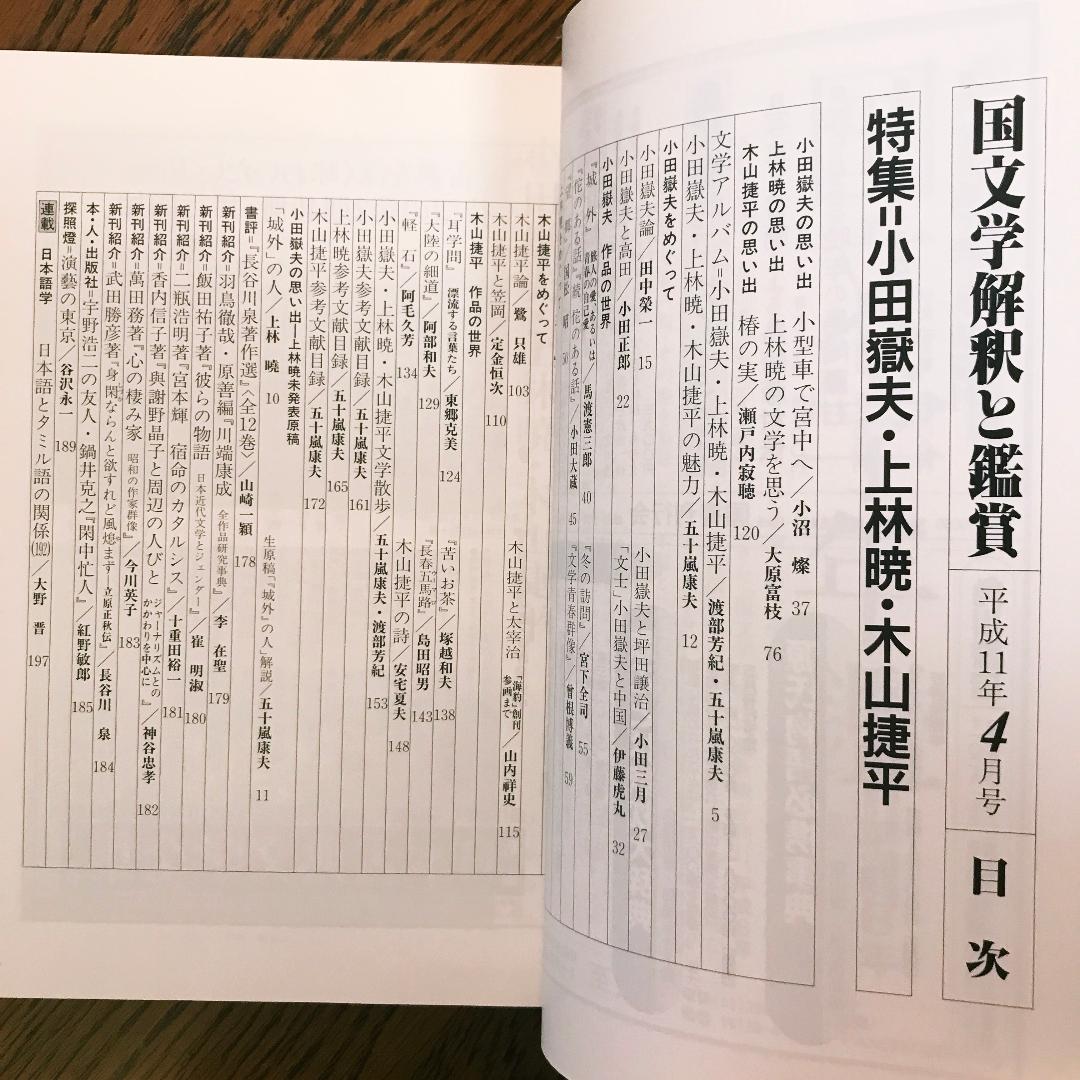 国文学解釈と鑑賞 平成11年4月号 目次
特集=小田嶽夫・上林暁・木山捷平
小田嶽夫の思い出 小型車で宮中へ/小沼 燦 37
上林暁の思い出 上林暁の文学を思う/大原富枝 76
木山捷平の思い出 椿の実/瀬戸内寂聴 120
文学アルバム=小田嶽夫・上林暁・木山捷平/渡部芳紀・五十嵐康夫 5
小田嶽夫・上林暁・木山捷平の魅力/五十嵐康夫 12
小田嶽夫をめぐって
小田嶽夫論/田中榮一 15 小田嶽夫と坪田譲治/小田三月 27
小田嶽夫と高田/小田正郎 22 「文士」小田嶽夫と中国/伊藤虎丸 32
小田嶽夫 作品の世界
『城 外』 旅人の愛、あるいは青春の自己愛/馬渡憲三郎 40 『冬の訪問』/宮下全司 55
『佗のある話』『続・佗のある話』/小田大蔵 45 『文学青春群像』/曾根博義 59
木山捷平をめぐって
木山捷平論/鷺 只雄 103 木山捷平と太宰治 「海豹」創刊参画まで/山内祥史 115
木山捷平と笠岡/定金恒次 110
木山捷平 作品の世界
『耳学問』 漂流する言葉たち/東郷克美 124 『苦いお茶』/塚越和夫 138
『大陸の細道』/阿部和夫 129 『長春五馬路』/島田昭男 143
『軽 石』/阿毛久芳 134 木山捷平の詩/安宅夏夫 148
小田嶽夫・上林暁・木山捷平文学散歩/五十嵐康夫・渡部芳紀 153
小田嶽夫参考文献目録/五十嵐康夫 161
上林暁参考文献目録/五十嵐康夫 165
木山捷平参考文献目録/五十嵐康夫 172
小田嶽夫の思い出―上林暁未発表原稿
「城外」の人/上林 暁 10 生原稿「『城外』の人」解説/五十嵐康夫 11
書評=『長谷川泉著作選』〈全12巻〉/山崎一穎 178
新刊紹介=羽鳥徹哉・原善編『川端康成 全作品研究事典』/李 在聖 179
新刊紹介=飯田祐子著『彼らの物語 日本近代文学とジェンダー』/崔 明淑 180
新刊紹介=二瓶浩明著『宮本輝 宿命のカタルシス』/十重田裕一 181
新刊紹介=香内信子著『與謝野晶子と周辺の人びと ジャーナリズムとのかかわりを中心に』/神谷忠孝 182
新刊紹介=萬田務著『心の棲み家 昭和の作家群像』/今川英子 183
新刊紹介=武田勝彦著『身閑ならんと欲すれど風熄まず―立原正秋伝』/長谷川 泉 184
本・人・出版社=宇野浩二の友人・鍋井克之『閑中忙人』/紅野敏郎 185
探照燈=演藝の東京/谷沢永一 189
連載 日本語学 日本語とタミル語の関係(192)/大野 晋 197